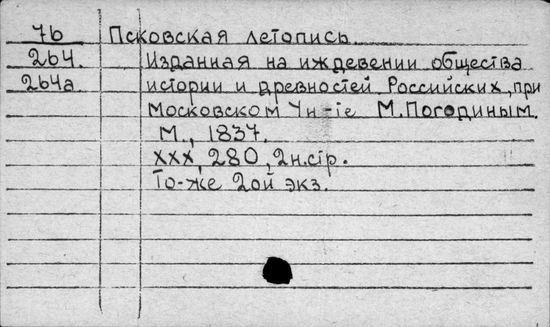 7б Псковская летопись.
264. Изданная на иждевении общества
264а истории и древностей Российских, при
Московском Ун-те М.Погодиным.
М., 1837.
XXX, 280, 2н.стр.
То-же 2ой экз.